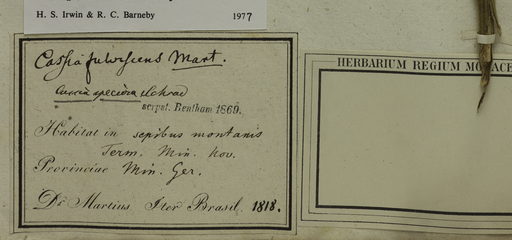 H. S. Irwin & R. C. Barneby 1977
Cassia fulvescens Mart.
Cassia speciosa Schrad
scrpst. Bentham 1869.
Habitat in sepibus montanis
Term. Min. Nov.
Provinciae Min. Ger.
Dr Martius Iter Brasil. 1818.
HERBARIUM REGIUM MONACE